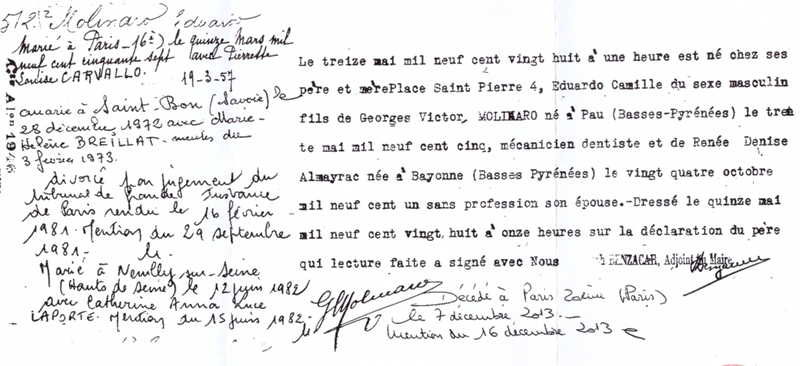 512 Molinaro Eduardo
Marié à Paris-16è) le quinze Mars mil
neuf cent cinquante sept avec Pierrette
Louise CARVALLO. 19-3-57
marié à Saint-Bon (Savoie) le
28 décembre 1972 avec Marie-
Hélène BREILLAT. mention du
3 février 1973.
divorcé par jugement du
tribunal de grande Instance
de Paris rendu le 16 février
1981. Mention du 29 septembre
1981.
Marié à Neuilly-sur-Seine
(Hauts de Seine) le 12 juin 1982
avec Catherine Anna Luce
LAPORTE. Mention du 15 juin 1982.
Le treize mai mil neuf cent vingt huit à une heure est né chez ses
père et mèrePlace Saint Pierre 4, Eduardo Camille du sexe masculin
fils de Georges Victor, MOLINARO né à Pau (Basses-Pyrénées) le tren
te mai mil neuf cent cinq, mécanicien dentiste et de Renée Denise
Almayrac née à Bayonne (Basses Pyrénées) le vingt quatre octobre
mil neuf cent un sans profession son épouse.-Dressé le quinze mai
mil neuf cent vingt, huit à onze heures sur la déclaration du père
qui lecture faite a signé avec Nous BENZACAR, Adjoint au Maire
GMolinaro
Benzacar
Décédé à Paris 20ème (Paris)
le 7 décembre 2013.-
Mention du 16 décembre 2013